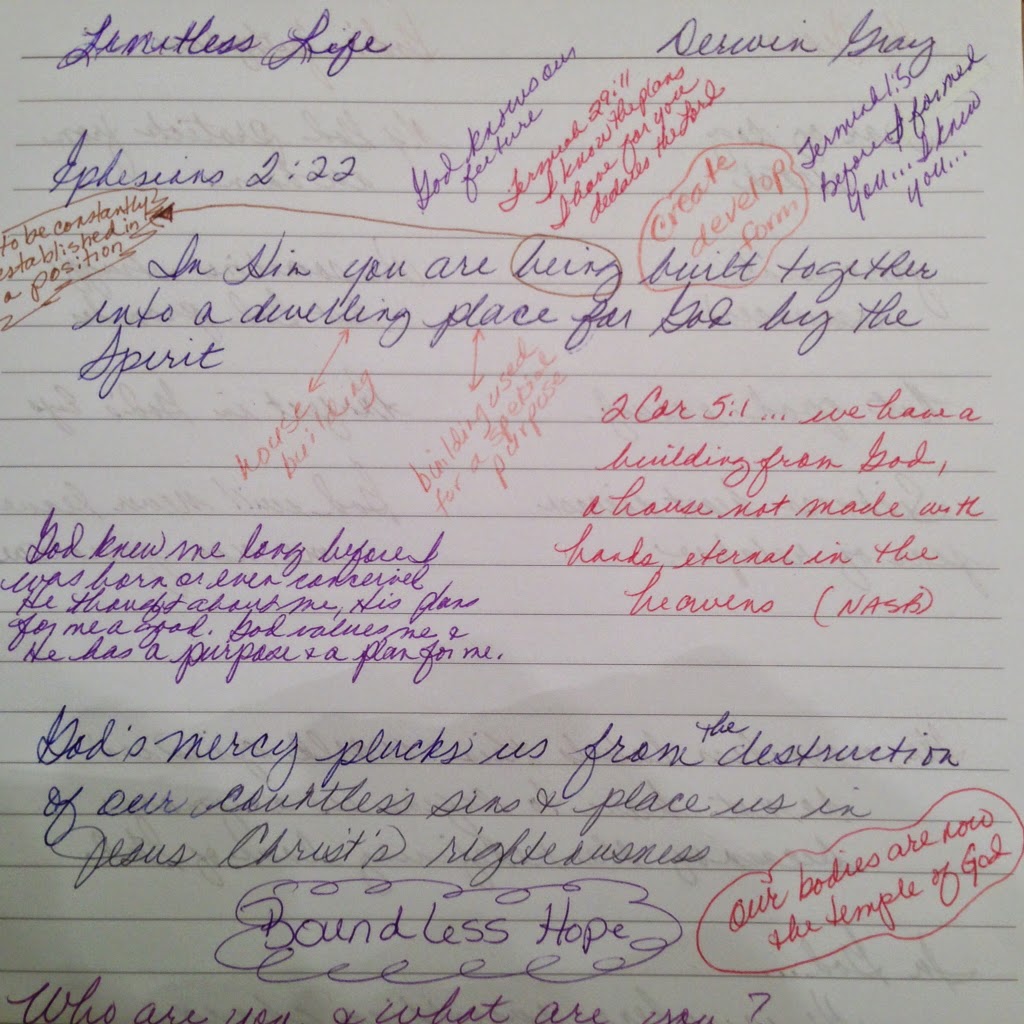 Limitless Life
Derwin Gray
God knows our
future
Jermiah 29:11
I know the plans
I have for you
declares the Lord
Jermiah 1:5
before I formed
you... I knew
you...
Ephesians 2:22
Create
develop
form
to be constantly
established in
a position
In Him you are being built together
into a dwelling place for God by the
Spirit
house
building
building used
for a special
purpose
2 Cor 5:1 ... we have a
building from God,
a house not made with
hands, eternal in the
heavens (NASB)
God knew me long before I
was born or even conceived
He thought about me, His plans
for me a good. God values me &
He has a purpose & a plan for me.
God's mercy plucks us from the destruction
of our countless sins & place us in
Jesus Christ's righteousness
Our bodies are now
the temple of God
Boundless Hope
Who are you & what are you?